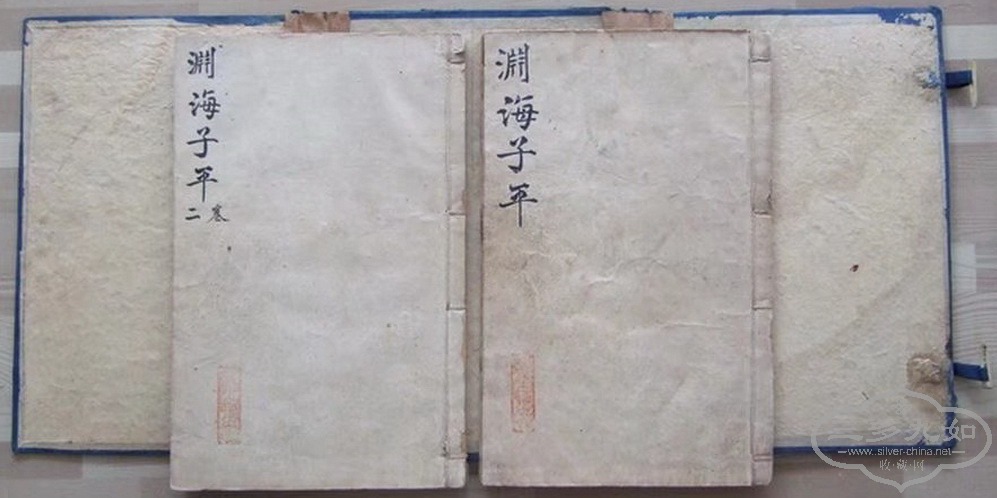 淵海子平
卷二
淵海子平
www.silver-china.net
收·藏·网